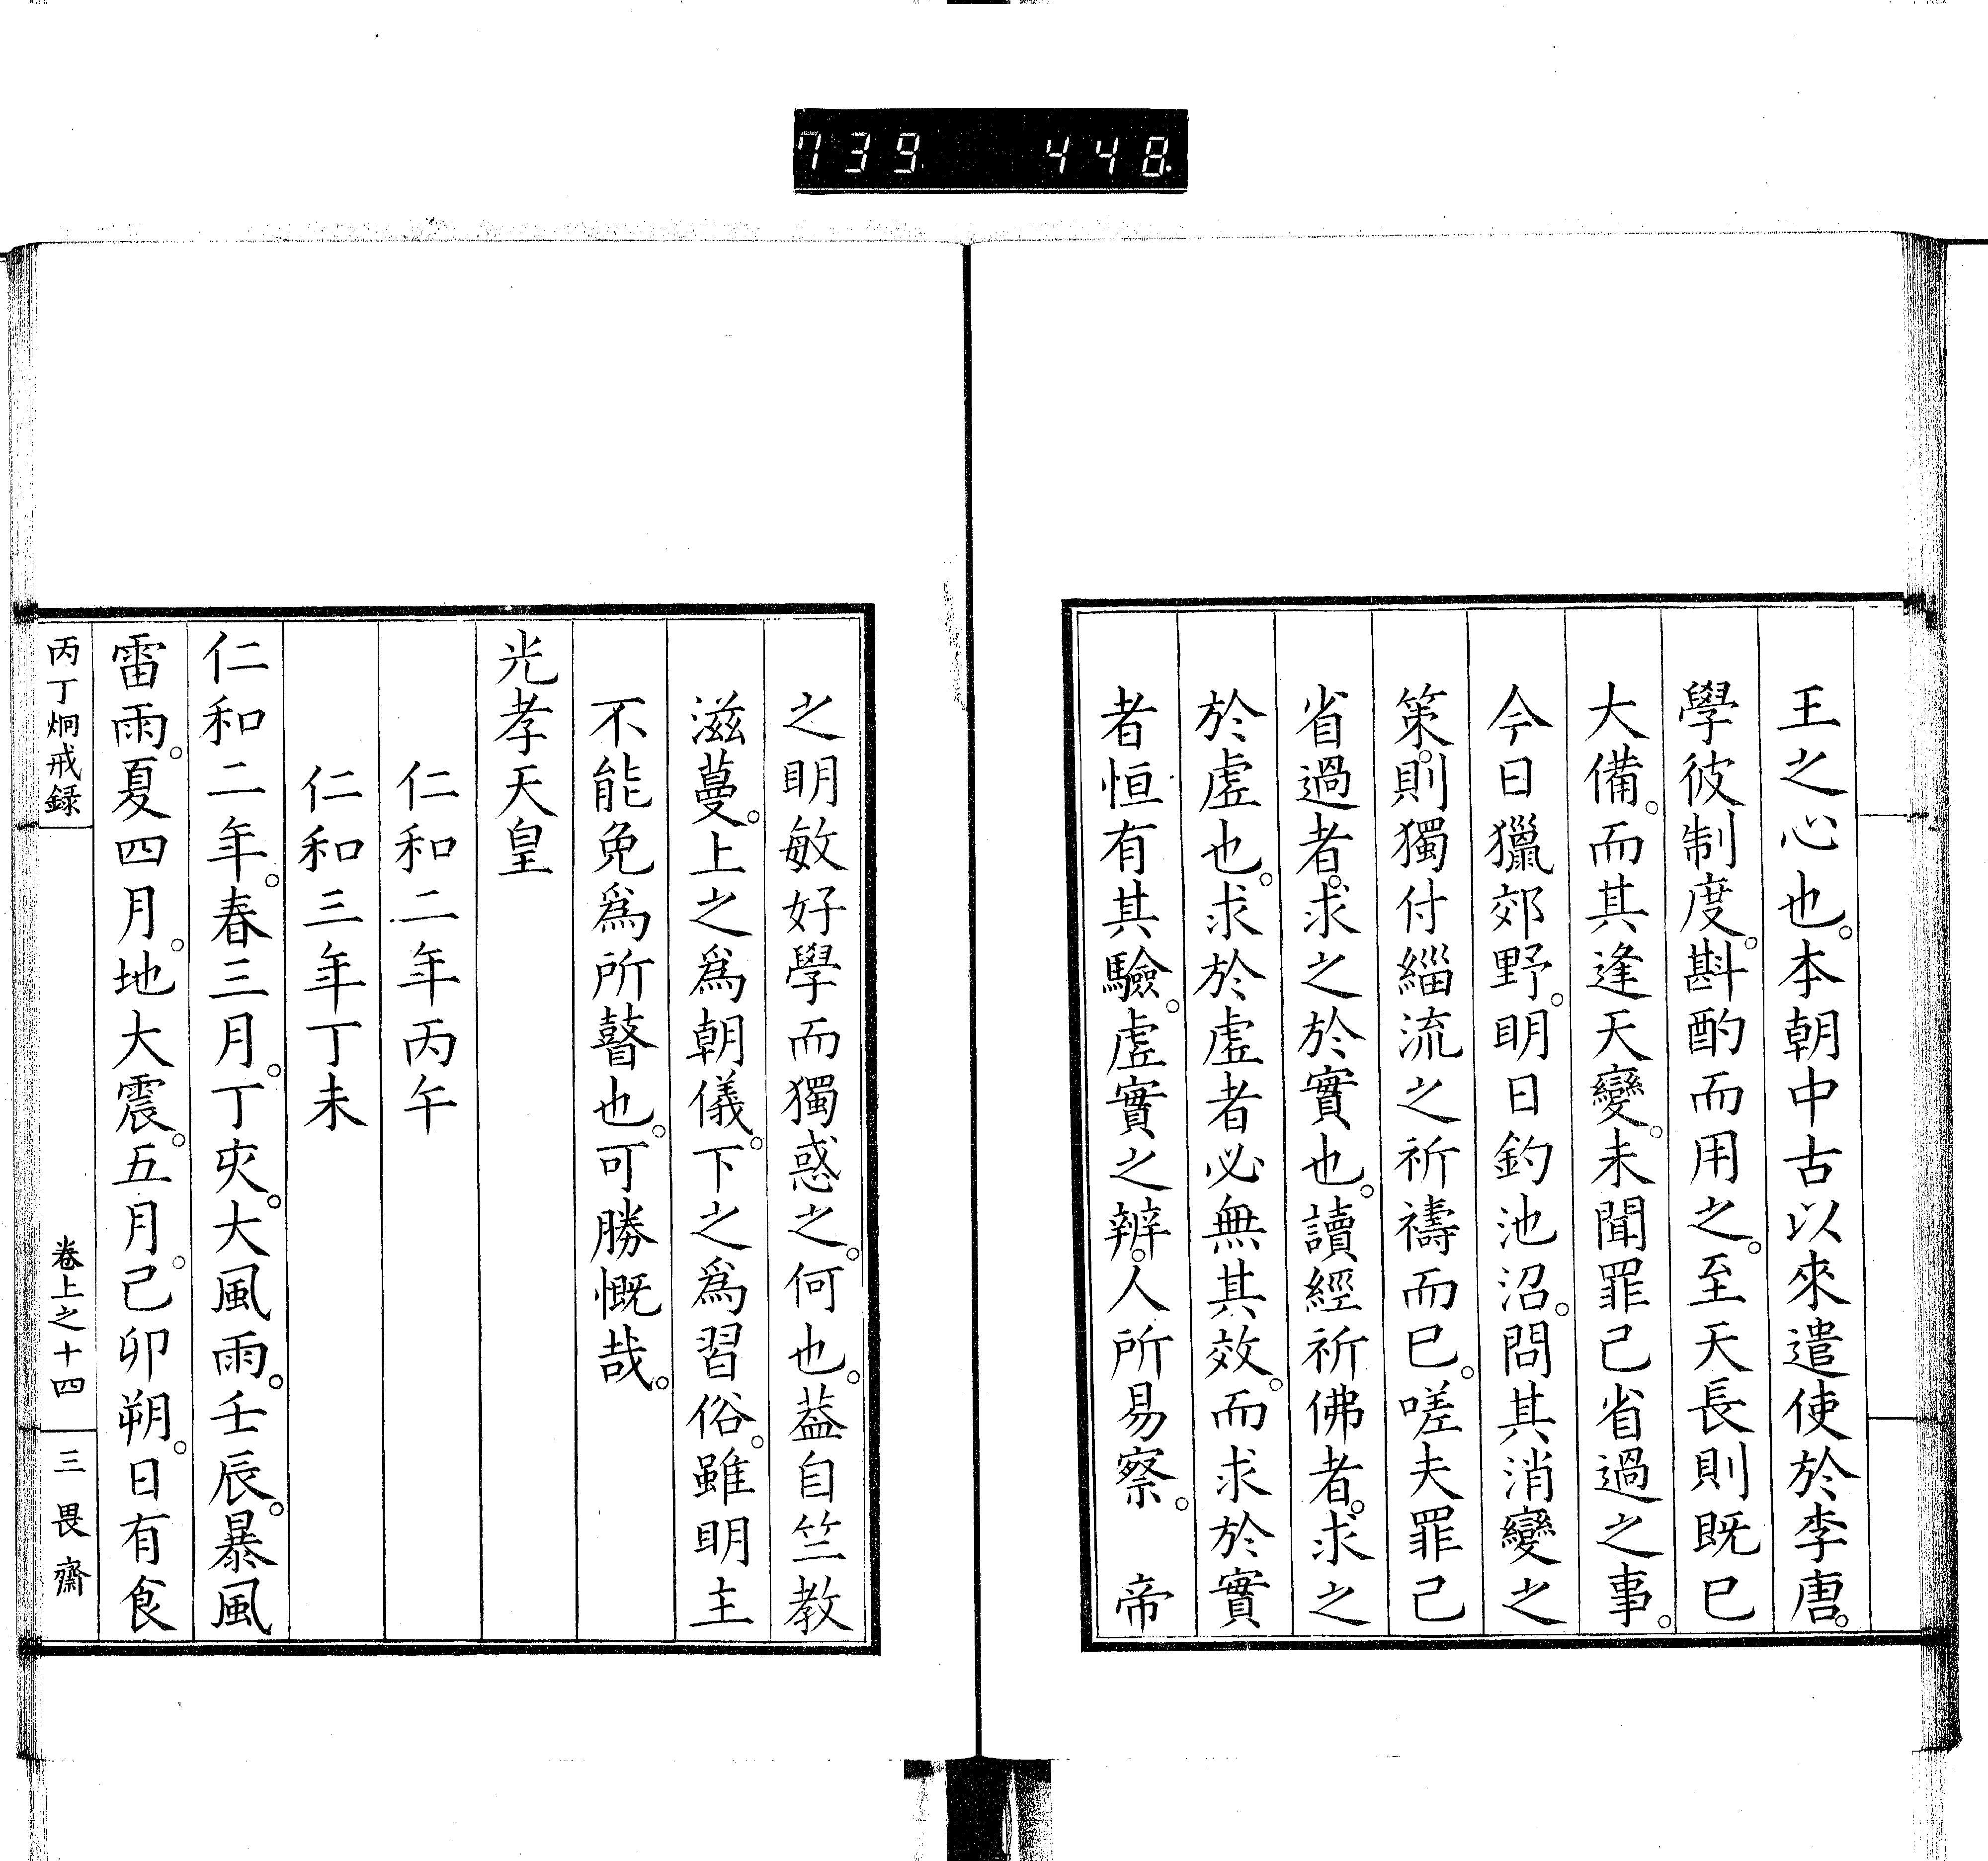 739 448
王之心也。本朝中古以來遣使於李唐。
學彼制度。斟酌而用之。至天長則既已
大備。而其逢天變。未聞罪己省過之事。
今日獵郊野。明日釣池沼。問其消變之
策。則獨付緇流之祈禱而已。嗟夫罪己
省過者。求之於實也。讀經祈佛者。求之
於虛也。求於虛者必無其效。而求於實
者恒有其驗。虛實之辨。人所易察。　帝
之明敏好學而獨惑之。何也。葢自竺教
滋蔓。上之爲朝儀。下之爲習俗。雖明主
不能免爲所瞽也。可勝慨哉。
光孝天皇
仁和二年丙午
仁和三年丁未
仁和二年。春三月。丁亥。大風雨。壬辰。暴風
雷雨。夏四月。地大震。五月。己卯朔。日有食
丙丁烱戒録 卷上之十四 三畏齋